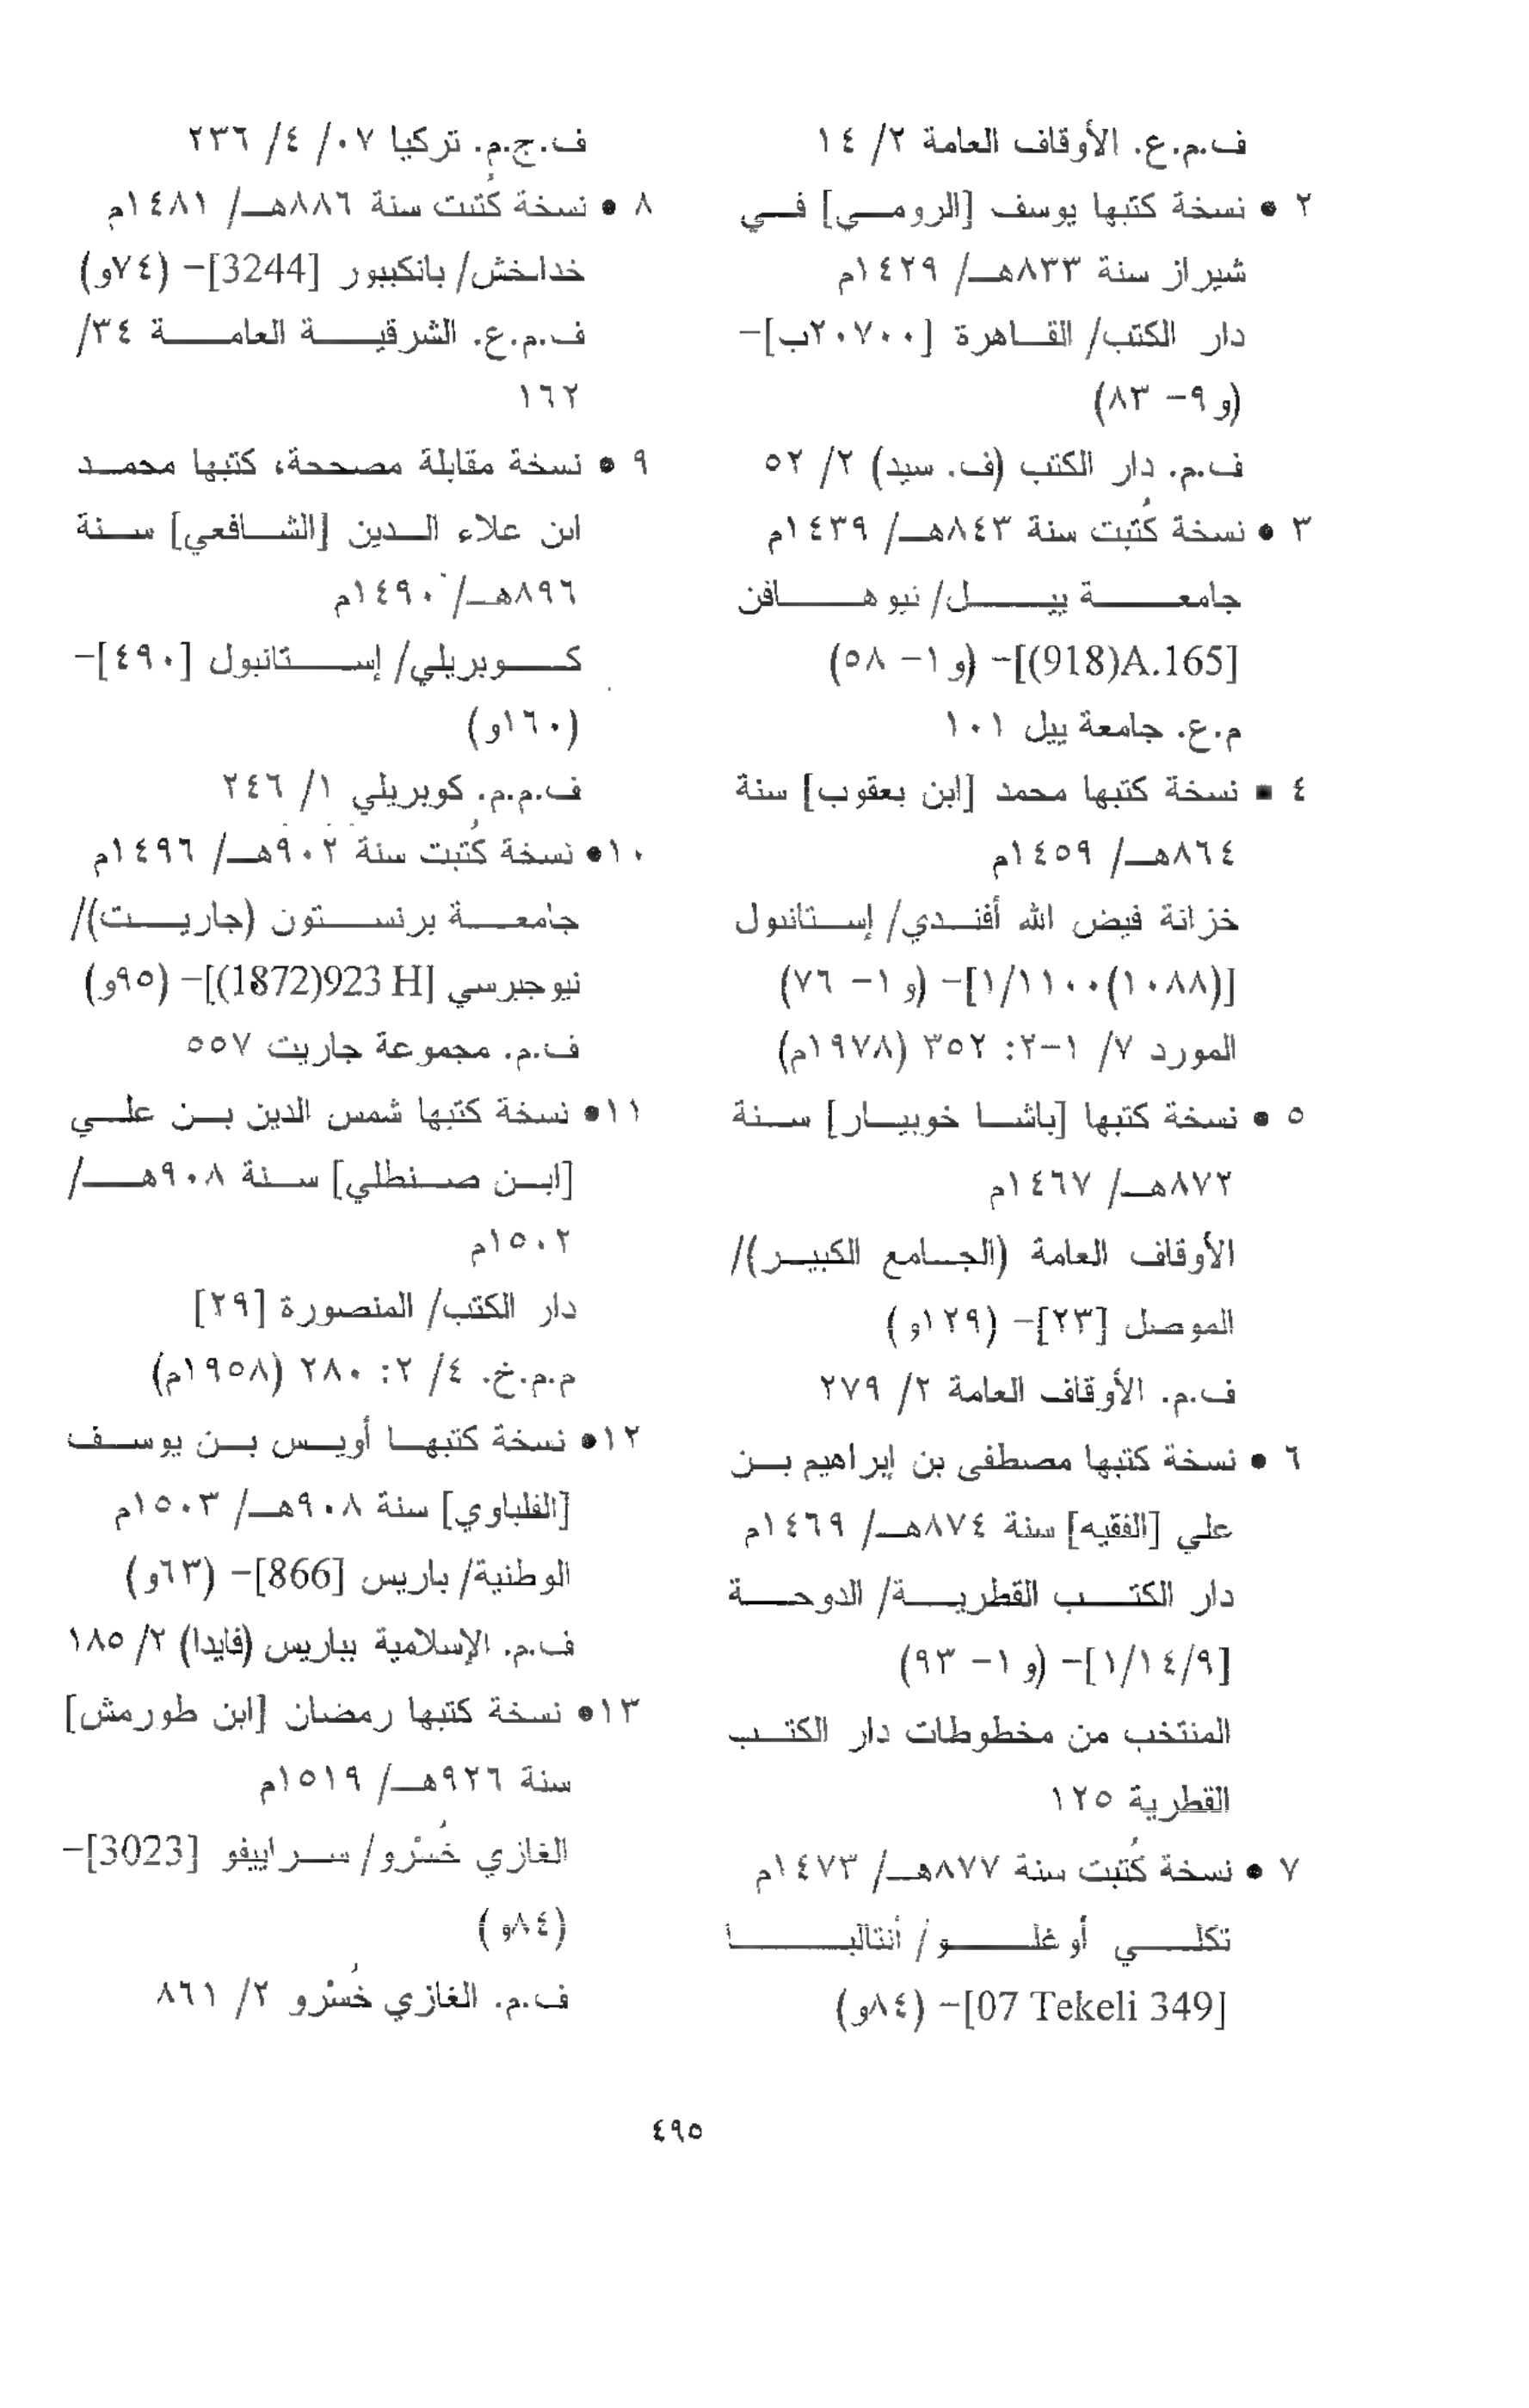 ف.م.ع. الأوقاف العامة ٢/ ١٤
٢ • نسخة كتبها يوسف [الرومي] في
شيراز سنة ٨٣٣هـ/ ١٤٢٩م
دار الكتب/ القاهرة [٢٠٧٠٠ب]-
(و ٩- ٨٣)
ف.م. دار الكتب (ف. سيد) ٢/ ٥٢
٣ • نسخة كُتبت سنة ٨٤٣هـ/ ١٤٣٩م
جامعة ييل/ نيو هافن
[A.165(918)]- (و ١- ٥٨)
م.ع. جامعة ييل ١٠١
٤ ▪ نسخة كتبها محمد [ابن يعقوب] سنة
٨٦٤هـ/ ١٤٥٩م
خزانة فيض الله أفندي/ إستانبول
[(١٠٨٨)١/١١٠٠]- (و ١- ٧٦)
المورد ٧/ ١-٢: ٣٥٢ (١٩٧٨م)
٥ • نسخة كتبها [باشا خوبيار] سنة
٨٧٢هـ/ ١٤٦٧م
الأوقاف العامة (الجامع الكبير)/
الموصل [٢٣]- (١٢٩و)
ف.م. الأوقاف العامة ٢/ ٢٧٩
٦ • نسخة كتبها مصطفى بن إبراهيم بن
علي [الفقيه] سنة ٨٧٤هـ/ ١٤٦٩م
دار الكتب القطرية/ الدوحة
[١/١٤/٩]- (و ١- ٩٣)
المنتخب من مخطوطات دار الكتب
القطرية ١٢٥
٧ • نسخة كُتبت سنة ٨٧٧هـ/ ١٤٧٣م
تكلي أوغلو/ أنتاليا
[07 Tekeli 349]- (٨٤و)
ف.ج.م. تركيا ٠٧/ ٤/ ٢٣٦
٨ • نسخة كُتبت سنة ٨٨٦هـ/ ١٤٨١م
خداخش/ بانكيبور [3244]- (٧٤و)
ف.م.ع. الشرقية العامة ٣٤/
١٦٢
٩ • نسخة مقابلة مصححة، كتبها محمد
ابن علاء الدين [الشافعي] سنة
٨٩٦هـ/ ١٤٩٠م
كوبريلي/ إستانبول [٤٩٠]-
(١٦٠و)
ف.م.م. كوبريلي ١/ ٢٤٦
١٠• نسخة كُتبت سنة ٩٠٢هـ/ ١٤٩٦م
جامعة برنستون (جاريت)/
نيوجيرسي [923 H(1872)]- (٩٥و)
ف.م. مجموعة جاريت ٥٥٧
١١• نسخة كتبها شمس الدين بن علي
[ابن صنطلي] سنة ٩٠٨هـ/
١٥٠٢م
دار الكتب/ المنصورة [٢٩]
م.م.خ. ٤/ ٢: ٢٨٠ (١٩٥٨م)
١٢• نسخة كتبها أويس بن يوسف
[الفلباوي] سنة ٩٠٨هـ/ ١٥٠٣م
الوطنية/ باريس [866]- (٦٣و)
ف.م. الإسلامية بباريس (فايدا) ٢/ ١٨٥
١٣• نسخة كتبها رمضان [ابن طورمش]
سنة ٩٢٦هـ/ ١٥١٩م
الغازي خُسْرو/ سراييفو [3023]-
(٨٤و)
ف.م. الغازي خُسْرو ٢/ ٨٦١
٤٩٥